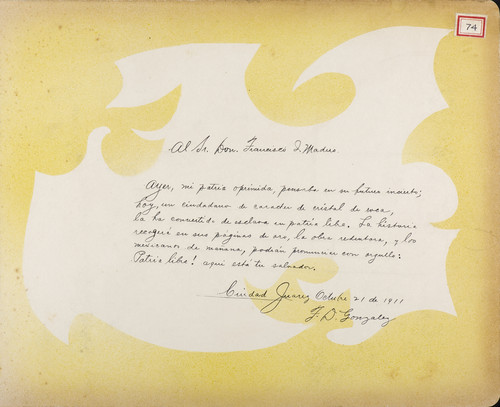 74
Al Sr. Don. Francisco I. Madero.
Ayer, mi patria oprimida, pensaba en su futuro incierto;
hoy, un ciudadano de caracter de cristal de roca,
la ha convertido de esclava en patria libre. La historia
recogerá en sus páginas de oro, la obra redentora, y los
mexicanos de mañana, podrán pronunciar con orgullo:
Patria libre! aqui está tu salvador.
Ciudad Juarez Octubre 21 de 1911
F. D. Gonzalez